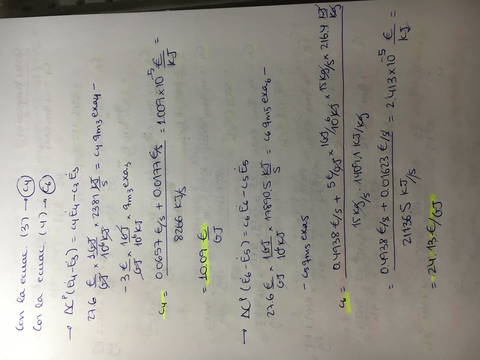 Con la ecuac (3) → C4
Con la ecuac (4) → C6
→ ΔCᴾ (Ė4-Ė3) = C4Ė4 - C3Ė3
27.6 €/GJ × 1GJ/10⁶ KJ × 2381 KJ/s = C4 qm3 exa4 -
-3 €/GJ × 1GJ/10⁶ KJ × qm3 exa3
C4 = 0.0657 €/s + 0.0177 €/s / 8266 KJ/s = 1.009×10⁻⁵ €/KJ =
= 10.09 €/GJ
→ ΔCᴾ (Ė6-Ė5) = C6Ė6 - C5Ė5
27.6 €/GJ × 1GJ/10⁶ KJ × 17890.5 KJ/s = C6 qm5 exa6 -
- C5 qm5 exa5
C6 = 0.4938 €/s + 5 €/GJ × 1GJ/10⁶ KJ × 15 Kg/s × 216.4 KJ/Kg / 15 Kg/s · 1409.1 KJ/Kg =
= 0.4938 €/s + 0.01623 €/s / 21136.5 KJ/s = 2.413×10⁻⁵ €/KJ =
= 24.13 €/GJ